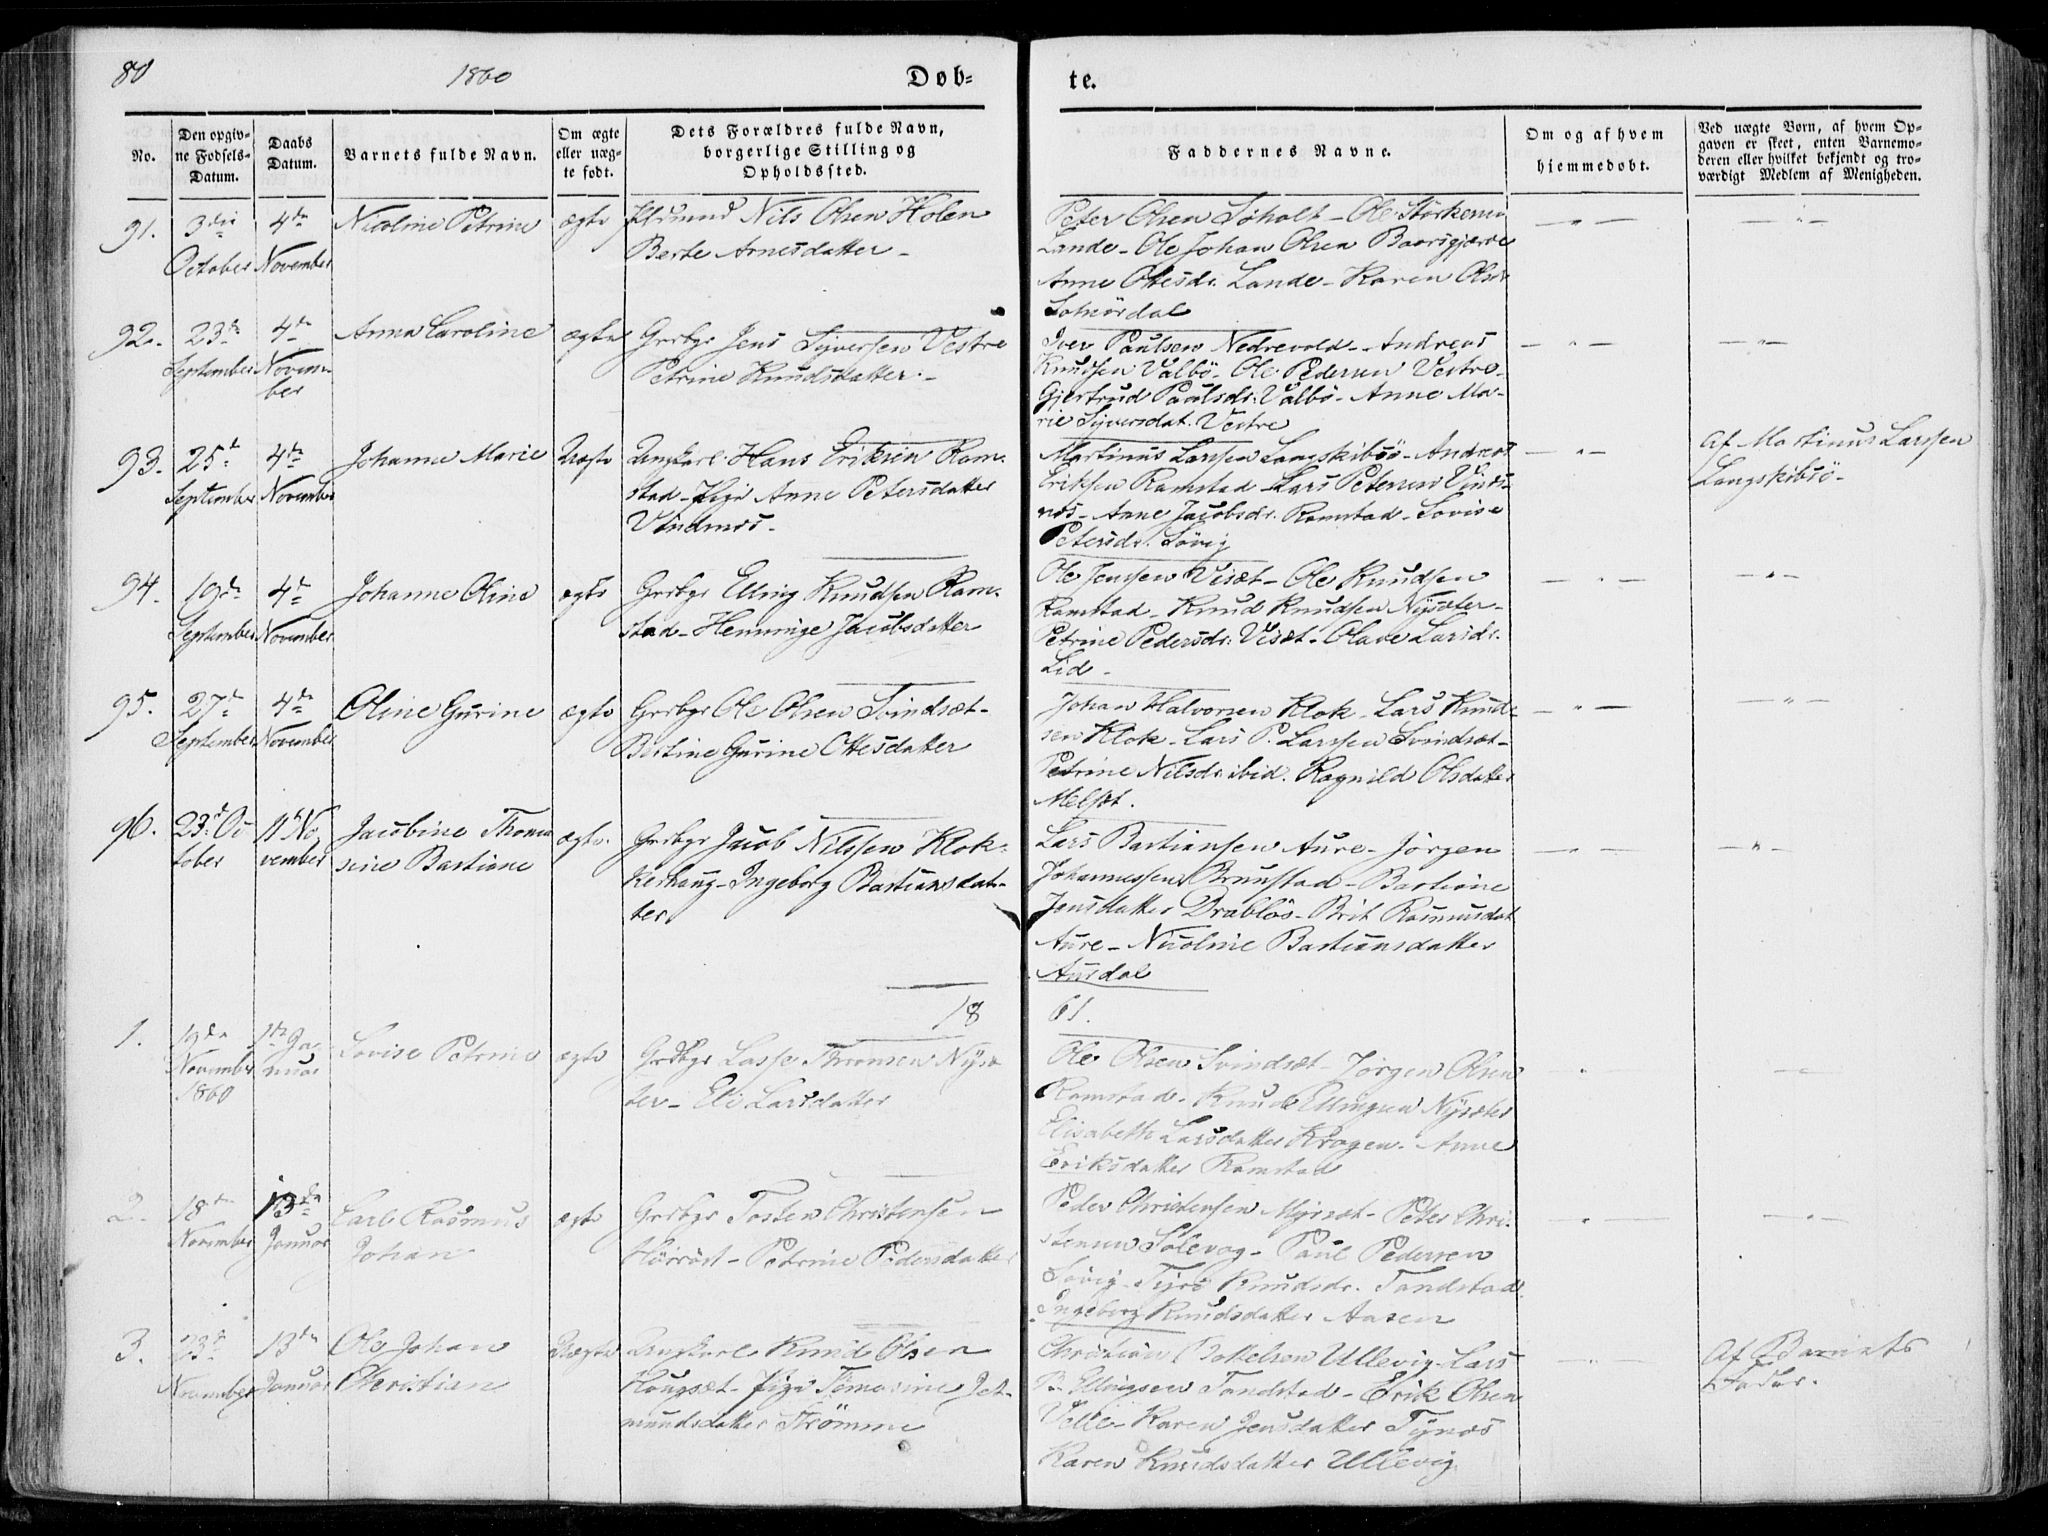 80
1860
Døb-
te.
No.
Den opgiv-
ne Fødsels-
Datum.
Daabs
Datum.
Barnets fulde Navn.
Om ægte
eller uæg-
te født.
Dets Forældres fulde Navn,
borgerlige Stilling og
Opholdssted.
Faddernes Navne.
Om og af hvem
hjemmedøbt.
Ved uægte Børn, af hvem Op-
gaven er skeet, enten Barnemo-
deren eller hvilket bekjendt og tro-
værdigt Medlem af Menigheden.
91.
3die
October
4de
November
Nicoline Petrine
ægte
Nils Olsen Holen
Berte Arnesdatter -
Peter Olsen Søholt - Ole
Lande - Ole Johan Olsen
Anne Ottesdr. Lande - Karen Olsdr
92.
23de
September
4de
Novem-
ber
Anna Caroline
ægte
Grbgr Jens Syversen Vestre
Petrine Knudsdatter. -
Iver Paulsen Nedrevold - Andreas
Knudsen Valbø - Ole Pedersen Vestre -
Gjertrud Paulsdr: Valbø - Anne Ma-
rie Syversdat. Vestre
93.
25de
September
4de
November
Johanne Marie
Uægte
Ungkarl Hans Eriksen Ram-
stad - Pige Anne Petersdatter
Vindnes -
Martinus Larssen Langskibsö - Andreas
Eriksen Ramstad - Lars Petersen Vind-
nes - Anne Jacobsdr. Ramstad - Lovise
Petersdr. Søvig
Af Martinus Larssen
Langskibsö -
94.
19de
September
4de
November
Johanne Oline
ægte
Grbgr Elling Knudsen Ram-
stad - Hemminge Jacobsdatter
Ole Jensen Viset - Ole Knudsen
Ramstad - Knud Knudsen Nysæter -
Petrine Pedersdr: Viset - Olave Larsdr.
Lid -
95.
27de
September
4de
November
Oline Gurine
ægte
Grbgr Ole Olsen Svindsæt -
Bertine Gurine Ottesdatter
Johan Halvorsen Klok - Lars Knud-
sen Klok - Lars P. Larssen Svindsæt -
Petrine Nilsdr ibid. Ragnild Olsdatter
Melsæt.
96.
23de Oc
tober
11te No
vember
Jacobine Thoma
sine Bastiane
ægte.
Grbgr Jacob Nilssen Klok-
kerhaug - Ingeborg Bastiansdat-
ter
Lars Bastiansen Aure - Jørgen
Johannessen Brunstad - Bastiane
Jensdatter Drabløs - Brit Rasmusdat
Aure - Nicoline Bastiansdatter
Aursdal
18
61.
1.
19de
November
1860
1de Ja-
nuar
Lovise Petrine
ægte
Grdbgr Lasse Thomsen Nysæ
ter - Eli Larsdatter
Ole Olsen Svindsæt - Jørgen Olsen
Ramstad - Knud Ellingsen Nysæter
Elisabeth Larsdatter Kragen. Anne
Eriksdatter Ramstad
2.
18de
November
13de
Januar
Carl Rasmus
Johan
ægte
Grbgr Tosten Christensen
- Petrine Pedersdatter
Peder Christensen Myrsæt - Peter Chri-
stensen Solevog - Paul Pedersen
Søvig - Knudsdr. Tandstad
Ingeborg Knudsdatter Aasen
3.
23de
November
13de
Januar
Ole Johan
Christian
Uægte
Ungkarl Knud Olsen
Haugsæt - Pige Tomasine Jet-
mundsdatter Strømme
Christian Ullevig - Lars
B. Ellingsen Tandstad - Erik Olsen
Velle - Karen Jensdatter Tynes
Karen Knudsdatter Ullevig
Af Barnets
Fader.